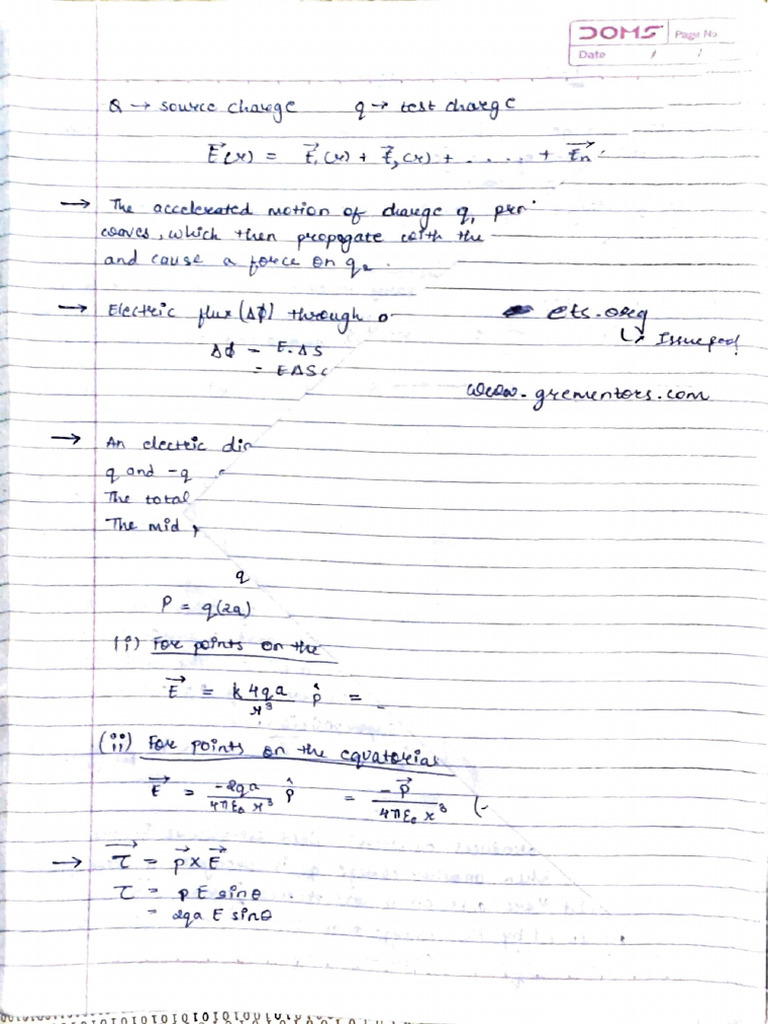 DOMS Page No
Date / /
Q → source charge q → test charge
E⃗(r) = E⃗₁(r) + E⃗₂(r) + . . . . . + E⃗n
→ The accelerated motion of charge q₁
waves, which then propagate with the
and cause a force on q₂.
→ Electric flux (Δϕ) through
ets.org
↳
Δϕ = E.ΔS
= EΔS
www.grementors.com
→ An electric
q and -q
The total
The mid
q
P = q(2a)
(i) For points on the
E⃗ = k4qa/r³ p̂ =
(ii) For points on the equatorial
E⃗ = -2qa/4πε₀r³ p̂ = -P⃗/4πε₀r³ (
→ τ⃗ = p⃗ × E⃗
τ = pE sinθ
= 2qa E sinθ